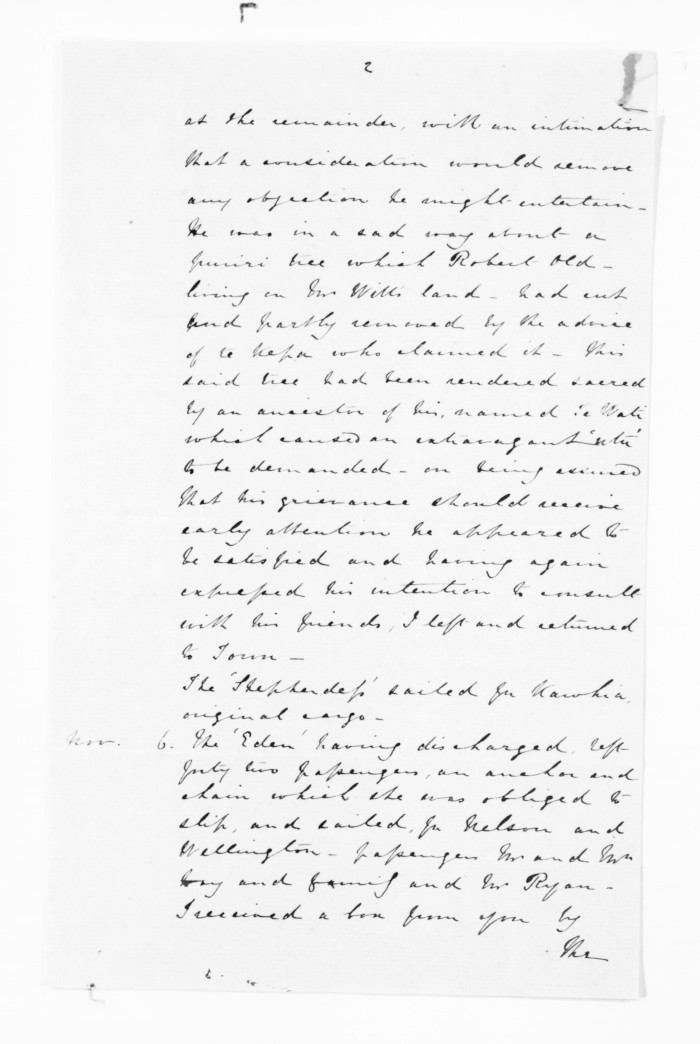 2
at the remainder, with an intimation
that a consideration would remove
any objection he might entertain -
He was in a sad way about a
puriri tree which Robert Old -
living on Mr Witts land - had cut
and partly removed by the advice
of te Kepa who claimed it - This
said tree had been rendered sacred
by an ancestor of his, named Te Wati
which caused an extravagant 'utu'
to be demanded - on being assured
that his grievance should receive
early attention he appeared to
be satisfied and having again
expressed his intention to consult
with his friends, I left and returned
to Town -
The 'Shepherdess' sailed for Kawhia,
original cargo -
Nov. 6. The 'Eden' having discharged, left
forty two passengers, an anchor and
chain which she was obliged to
slip, and sailed, for Nelson and
Wellington - passengers Mr and Mrs
and family and Mr Ryan -
I received a box from you by
the